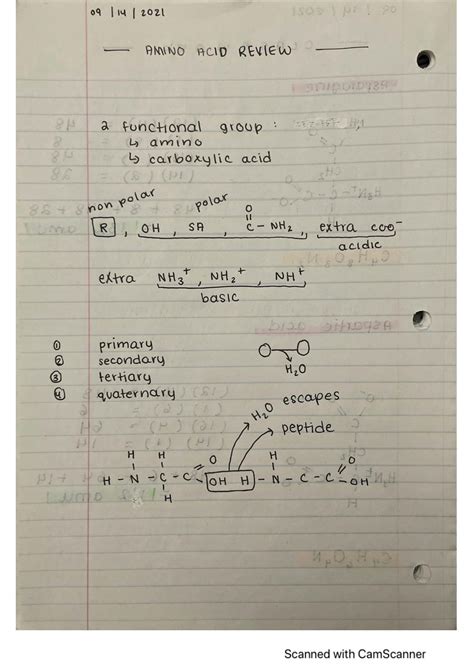 09 / 14 / 2021
AMINO ACID REVIEW
2 functional group :
↳ amino
↳ carboxylic acid
non polar
polar
R , OH , SA , O = C - NH₂ , extra coo⁻
acidic
extra NH₃⁺ , NH₂⁺ , NH⁺
basic
① primary
② secondary
③ tertiary
④ quaternary
H₂O
H₂O escapes
peptide
H H O H O
H - N - C - C - OH H - N - C - C - OH
H
Scanned with CamScanner